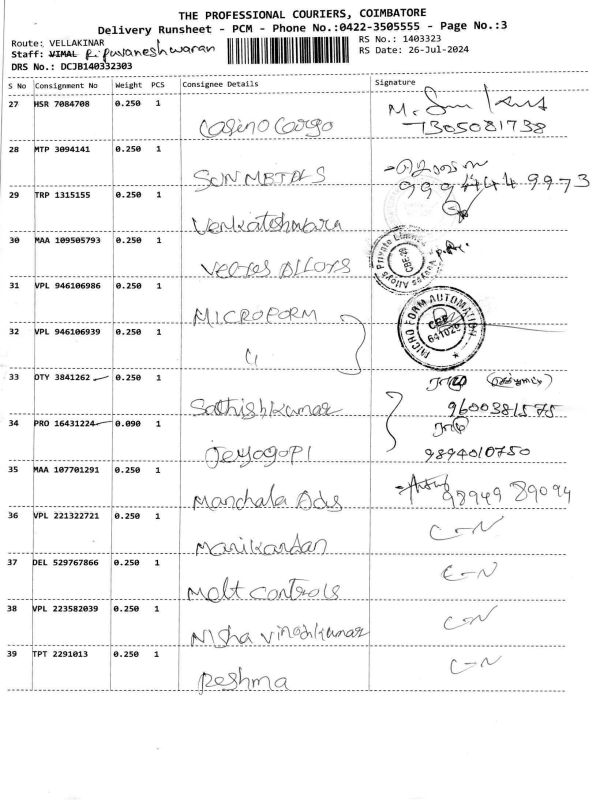 THE PROFESSIONAL COURIERS, COIMBATORE
Delivery Runsheet - PCM - Phone No.:0422-3505555 - Page No.:3
Route: VELLAKINAR RS No.: 1403323
Staff: VIMAL RS Date: 26-Jul-2024
DRS No.: DCJB140332303
S No Consignment No Weight PCS Consignee Details Signature
27 HSR 7084708 0.250 1 Casino Cargo
7305081738
28 MTP 3094141 0.250 1 SUN METALS
29 TRP 1315155 0.250 1 Venkateshwara
30 MAA 109505793 0.250 1 ALLOYS
Alloys Private Limited
31 VPL 946106986 0.250 1 MICROFORM
MICRO FORM AUTOMATION
CBE
641029
32 VPL 946106939 0.250 1 "
33 OTY 3841262 0.250 1 Sathishkumar
9600381575
34 PRO 16431224 0.090 1 Jeyagopi
9894010750
35 MAA 107701291 0.250 1 Manchala Ads
98949 89094
36 VPL 221322721 0.250 1 Manikandan C-N
37 DEL 529767866 0.250 1 Melt controls C-N
38 VPL 223582039 0.250 1 Nisha Vinothkumar C-N
39 TPT 2291013 0.250 1 Reshma C-N